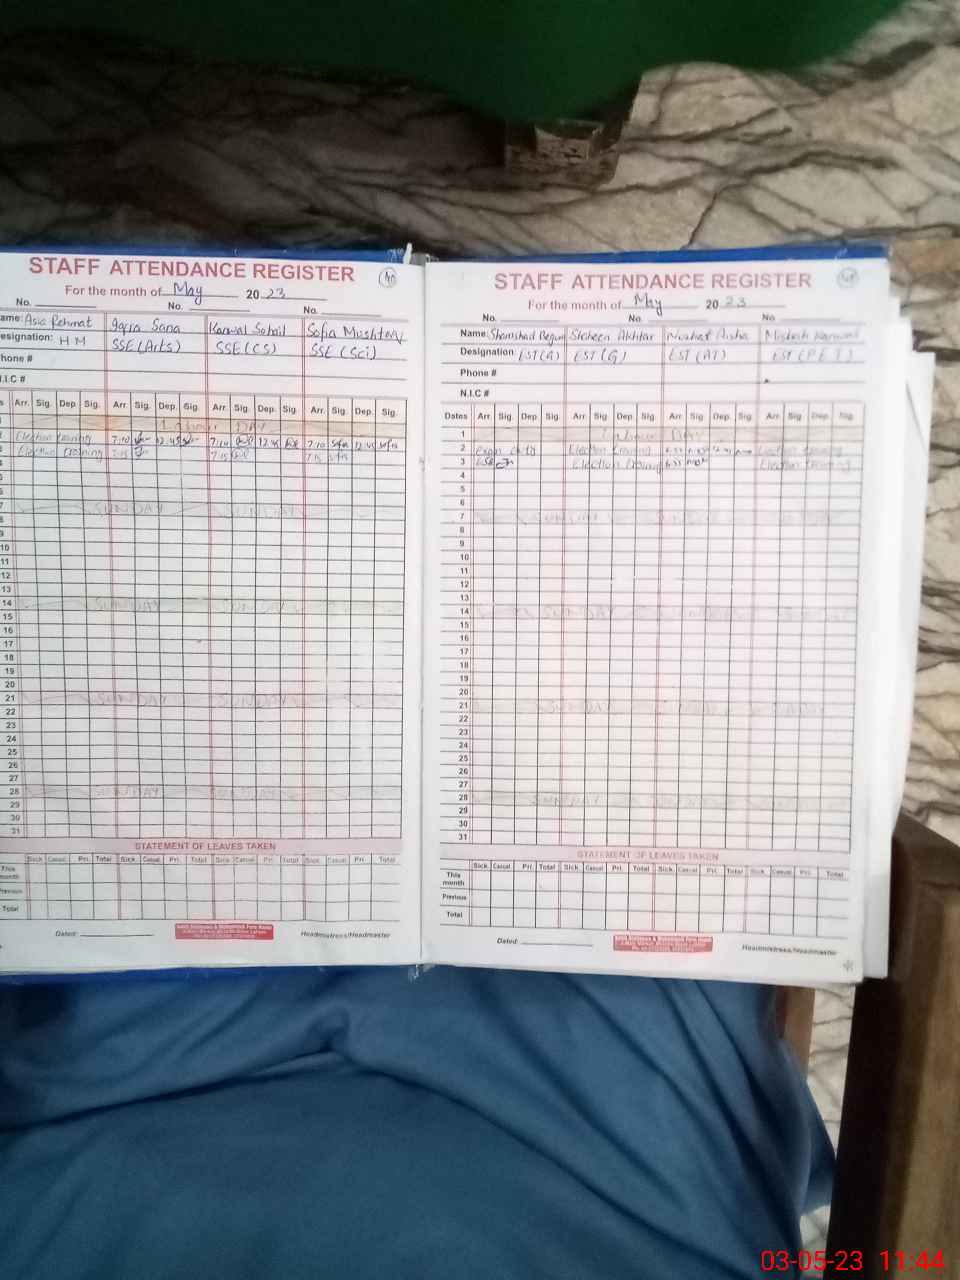 STAFF ATTENDANCE REGISTER
For the month of May 2023
No. No. No.
ame: Asia Rehmat Iqra Sana Kanwal Sohail Sofia Mushtaq
esignation: H M SSE (Arts) SSE (CS) SSE (Sci)
hone #
I.I.C #
s Arr. Sig. Dep. Sig. Arr. Sig. Dep. Sig. Arr. Sig. Dep. Sig. Arr. Sig. Dep. Sig.
Labour DAY
Election training 7:10 12:45 7:10 12:45 7:10 Sofia 12:45 Sofia
Election training 7:15 7:15 7:15 Sofia
7
8
9
10
11
12
13
14
15
16
17
18
19
20
21
22
23
24
25
26
27
28
29
30
31
STATEMENT OF LEAVES TAKEN
Sick Casual Pri. Total Sick. Casual. Pri. Total Sick Casual Pri. Total Sick. Casual Pri. Total
This month
Previous
Total
Dated: Headmistress/Headmaster
STAFF ATTENDANCE REGISTER
For the month of May 2023
No. No. No.
Name: Shamshad Begum Shaheen Akhtar Nushat Aisha Misbah Kanwal
Designation: EST (G) EST (G) EST (AT) EST (P.E.T)
Phone #
N.I.C #
Dates Arr. Sig. Dep. Sig. Arr. Sig. Dep. Sig. Arr. Sig. Dep. Sig. Arr. Sig. Dep. Sig.
1 Labour DAY
2 Exam duty Election training Election training
3 Election training Election training
4
5
6
7
8
9
10
11
12
13
14
15
16
17
18
19
20
21
22
23
24
25
26
27
28
29
30
31
STATEMENT OF LEAVES TAKEN
Sick. Casual. Pri. Total Sick. Casual. Pri. Total Sick. Casual. Pri. Total Sick. Casual Pri. Total
This month
Previous
Total
Dated: Headmistress/Headmaster
03-05-23 11:44